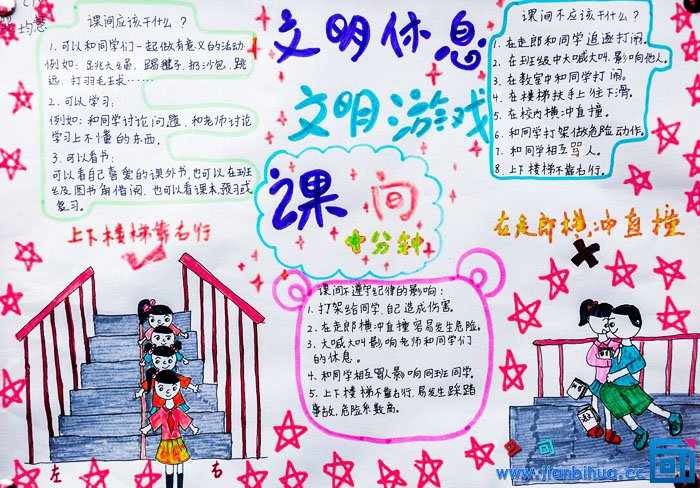 课间应该干什么？
1. 可以和同学们一起做有意义的活动.
例如：跳大绳、踢毽子、扔沙包、跳
远、打羽毛球……
2. 可以学习：
例如：和同学讨论问题、和老师讨论
学习上不懂的东西.
3. 可以看书：
可以看自己喜爱的课外书，也可以在班
级图书角借阅，也可以看课本，预习或
复习。
文明休息
文明游戏
课间
十分钟
课间不应该干什么？
1. 在走郎和同学追逐打闹。
2. 在班级中大喊大叫，影响他人。
3. 在教室中和同学打闹。
4. 在楼梯扶手上往下滑。
5. 在校内横冲直撞。
6. 和同学打架做危险动作。
7. 和同学相互骂人。
8. 上下楼梯不靠右行。
上下楼梯靠右行
左
右
课间不遵守纪律的影响：
1. 打架给同学、自己造成伤害。
2. 在走郎横冲直撞容易发生危险。
3. 大喊大叫影响老师和同学们
的休息。
4. 和同学相互骂人影响同班同学。
5. 上下楼梯不靠右行，易发生踩踏
事故，危险系数高。
在走郎横冲直撞
www.jianbihua.cc